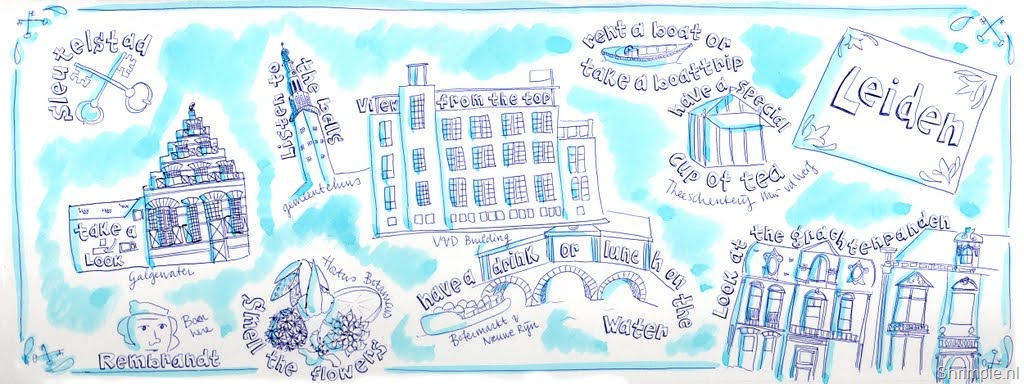 Sleutelstad
take a
LOOK
Galgewater
Listen to
the bells
gemeentehuis
View from the top
V&D Building
rent a boat or
take a boattrip
have a special
cup of tea
Leiden
Born
here
Rembrandt
Smell the flowers
Hortus Botanicus
have a drink or lunch on the
Water
Botermarkt &
Nieuwe Rijn
Look at the grachtenpanden
Shrimpie.nl